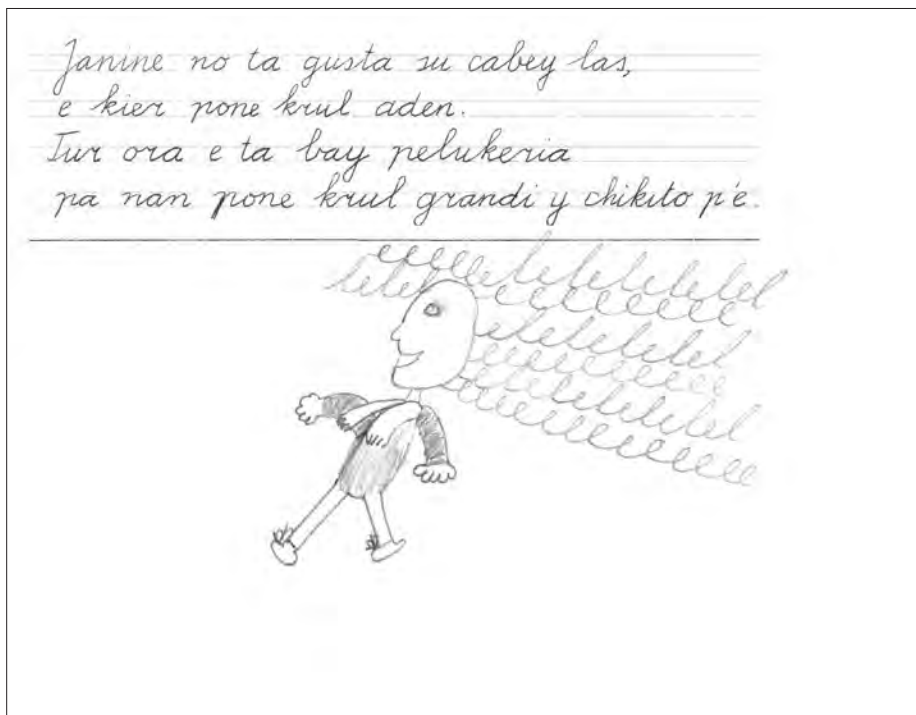 Janine no ta gusta su cabey las,
e kier pone krul aden.
Tur ora e ta bay pelukeria
pa nan pone krul grandi y chikito p'e.